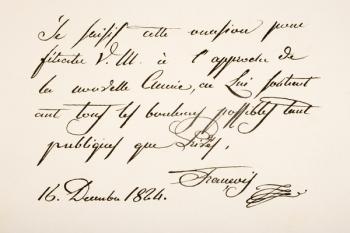 Je saisis cette occasion pour
féliciter V. M. à l'approche de
la nouvelle Année, en Lui souhait
ant tous les bonheurs possibles tant
publiques que Privés.
François
16. Decembre 1824.